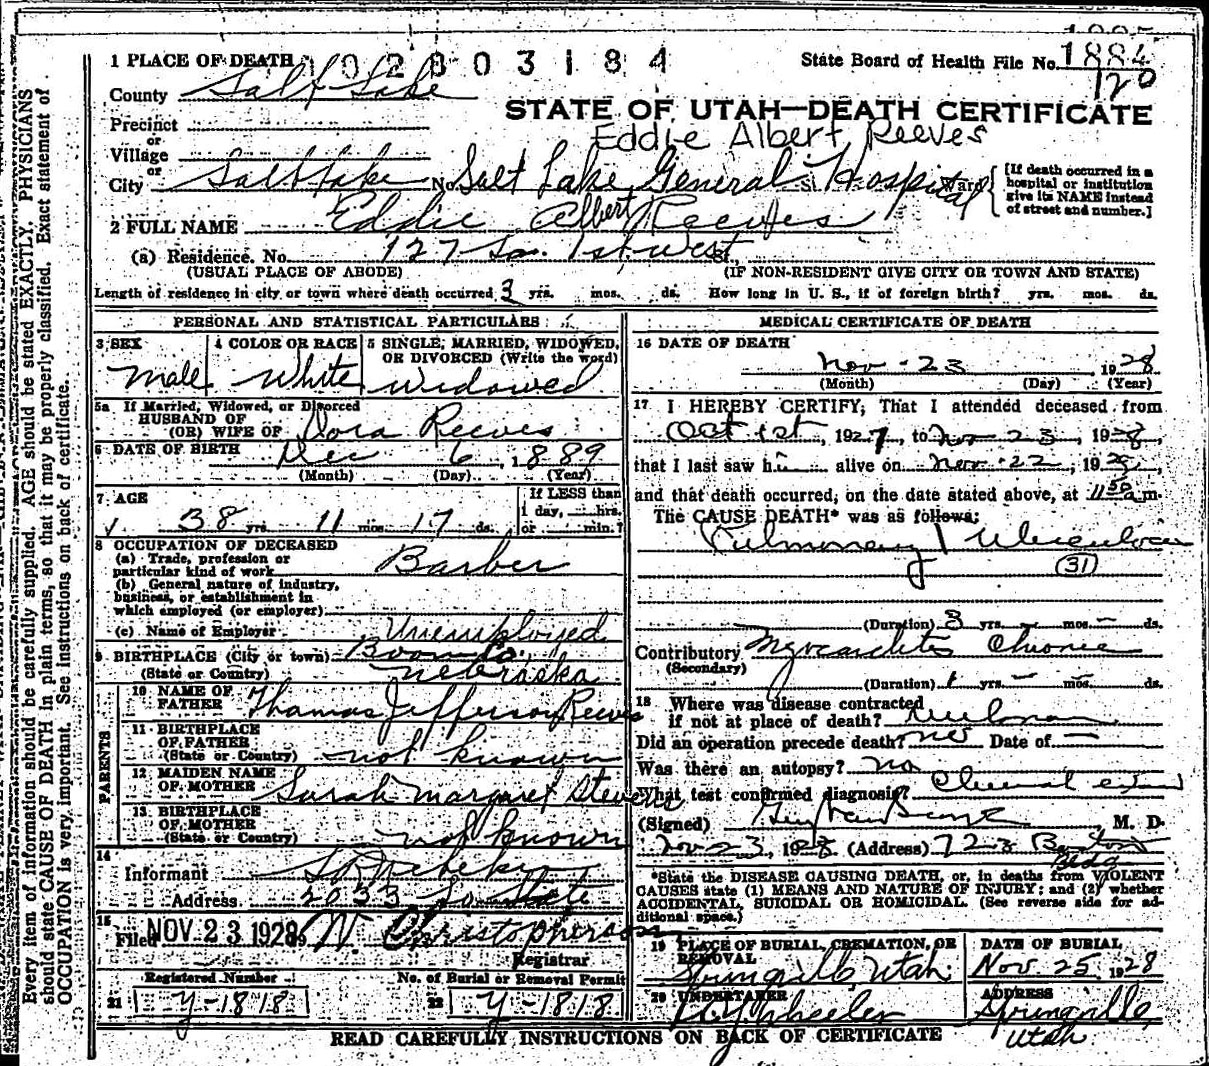 1885
1 PLACE OF DEATH 1 0 2 8 0 3 1 8 4 State Board of Health File No. 1884
120
County Salt Lake
STATE OF UTAH—DEATH CERTIFICATE
Precinct
or
Eddie Albert Reeves
Village
or
City Salt Lake No. Salt Lake General St. Hospital Ward
[If death occurred in a
hospital or institution
give its NAME instead
of street and number.]
2 FULL NAME Eddie Albert Reeves
(a) Residence. No. 127 So. 1st. West St.,
(USUAL PLACE OF ABODE) (IF NON-RESIDENT GIVE CITY OR TOWN AND STATE)
Length of residence in city or town where death occurred 3 yrs. mos. ds. How long in U. S., if of foreign birth? yrs. mos. ds.
PERSONAL AND STATISTICAL PARTICULARS
3 SEX
Male
4 COLOR OR RACE
White
5 SINGLE, MARRIED, WIDOWED,
OR DIVORCED (Write the word)
Widowed
5a If Married, Widowed, or Divorced
HUSBAND OF
(OR) WIFE OF Dora Reeves
6 DATE OF BIRTH Dec 6, 1889
(Month) (Day) (Year)
7 AGE
38 yrs. 11 mos. 17 ds.
If LESS than
1 day, hrs.
or min.?
8 OCCUPATION OF DECEASED
(a) Trade, profession or
particular kind of work Barber
(b) General nature of industry,
business, or establishment in
which employed (or employer)
(c) Name of Employer Unemployed
9 BIRTHPLACE (City or town) Boon Co.
(State or Country) Nebraska
PARENTS
10 NAME OF
FATHER Thomas Jefferson Reeves
11 BIRTHPLACE
OF FATHER
(State or Country) not known
12 MAIDEN NAME
OF MOTHER Sarah Margaret Stevens
13 BIRTHPLACE
OF MOTHER
(State or Country) not known
14
Informant
Address 2033 So State
15
Filed NOV 23 1928 W. Christopherson
Registrar
Registered Number No. of Burial or Removal Permit
21 Y-1818 22 Y-1818
MEDICAL CERTIFICATE OF DEATH
16 DATE OF DEATH
Nov - 23, 1928
(Month) (Day) (Year)
17 I HEREBY CERTIFY, That I attended deceased from
Oct 1st, 1927, to Nov 23, 1928
that I last saw him alive on Nov. 22, 1928,
and that death occurred, on the date stated above, at 11 50 a.m.
The CAUSE DEATH* was as follows:
Pulmonary Tuberculosis
(31)
(Duration) 3 yrs. — mos. — ds.
Contributory Myocarditis Chronic
(Secondary)
(Duration) 1 yrs. — mos. ds.
18 Where was disease contracted
if not at place of death? unknown
Did an operation precede death? no Date of —
Was there an autopsy? no
What test confirmed diagnosis? Clinical exam
(Signed) M. D.
Nov 23, 1928 (Address) 723 Boston
Bldg
*State the DISEASE CAUSING DEATH, or, in deaths from VIOLENT
CAUSES state (1) MEANS AND NATURE OF INJURY; and (2) whether
ACCIDENTAL, SUICIDAL OR HOMICIDAL. (See reverse side for ad-
ditional space.)
19 PLACE OF BURIAL, CREMATION, OR
REMOVAL
Springville, Utah
DATE OF BURIAL
Nov. 25, 1928
20 UNDERTAKER
A. Y. Wheeler
ADDRESS
Springville,
Utah
READ CAREFULLY INSTRUCTIONS ON BACK OF CERTIFICATE
Every item of information should be carefully supplied. AGE should be stated EXACTLY. PHYSICIANS
should state CAUSE OF DEATH in plain terms, so that it may be properly classified. Exact statement of
OCCUPATION is very important. See instructions on back of certificate.